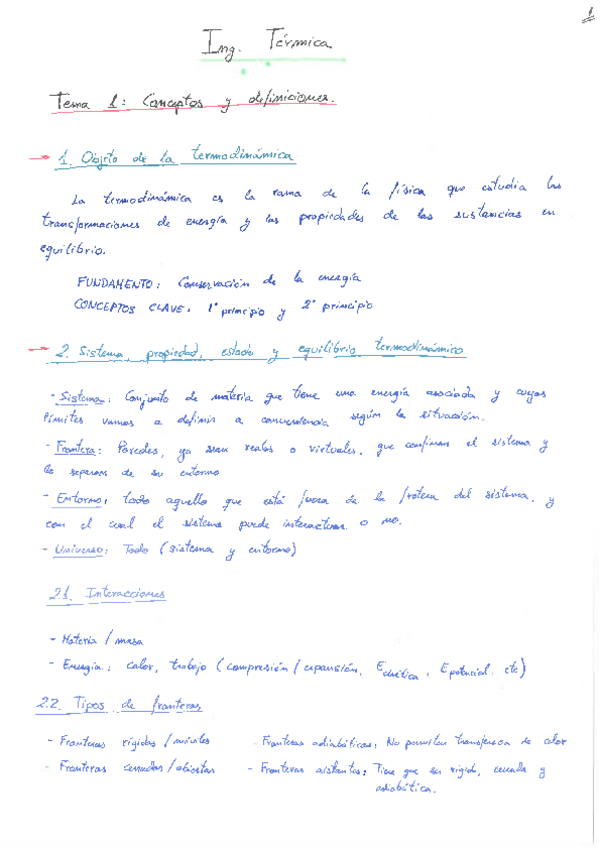 1
Ing. Térmica
Tema 1: Conceptos y definiciones.
→ 1. Objeto de la termodinámica
La termodinámica es la rama de la física que estudia las
transformaciones de energía y las propiedades de las sustancias en
equilibrio.
FUNDAMENTO: Conservación de la energía
CONCEPTOS CLAVE: 1º principio y 2º principio
→ 2. Sistema, propiedad, estado y equilibrio termodinámico
- Sistema: Conjunto de materia que tiene una energía asociada y cuyos
límites vamos a definir a conveniencia según la situación.
- Frontera: Paredes, ya sean reales o virtuales, que confinan el sistema y
lo separan de su entorno
- Entorno: todo aquello que está fuera de la frotera del sistema, y
con el cual el sistema puede interactuar o no.
- Universo: Todo (sistema y entorno)
2.1. Interacciones
- Materia / masa
- Energía: calor, trabajo (compresión / expansión, Ecinética, Epotencial, etc)
2.2. Tipos de fronteras
- Fronteras rígidas / móviles - Fronteras adiabáticas: No permiten transferencia de calor
- Fronteras cerradas / abiertas - Fronteras aislantes: Tiene que ser rígida, cerrada y
adiabática.